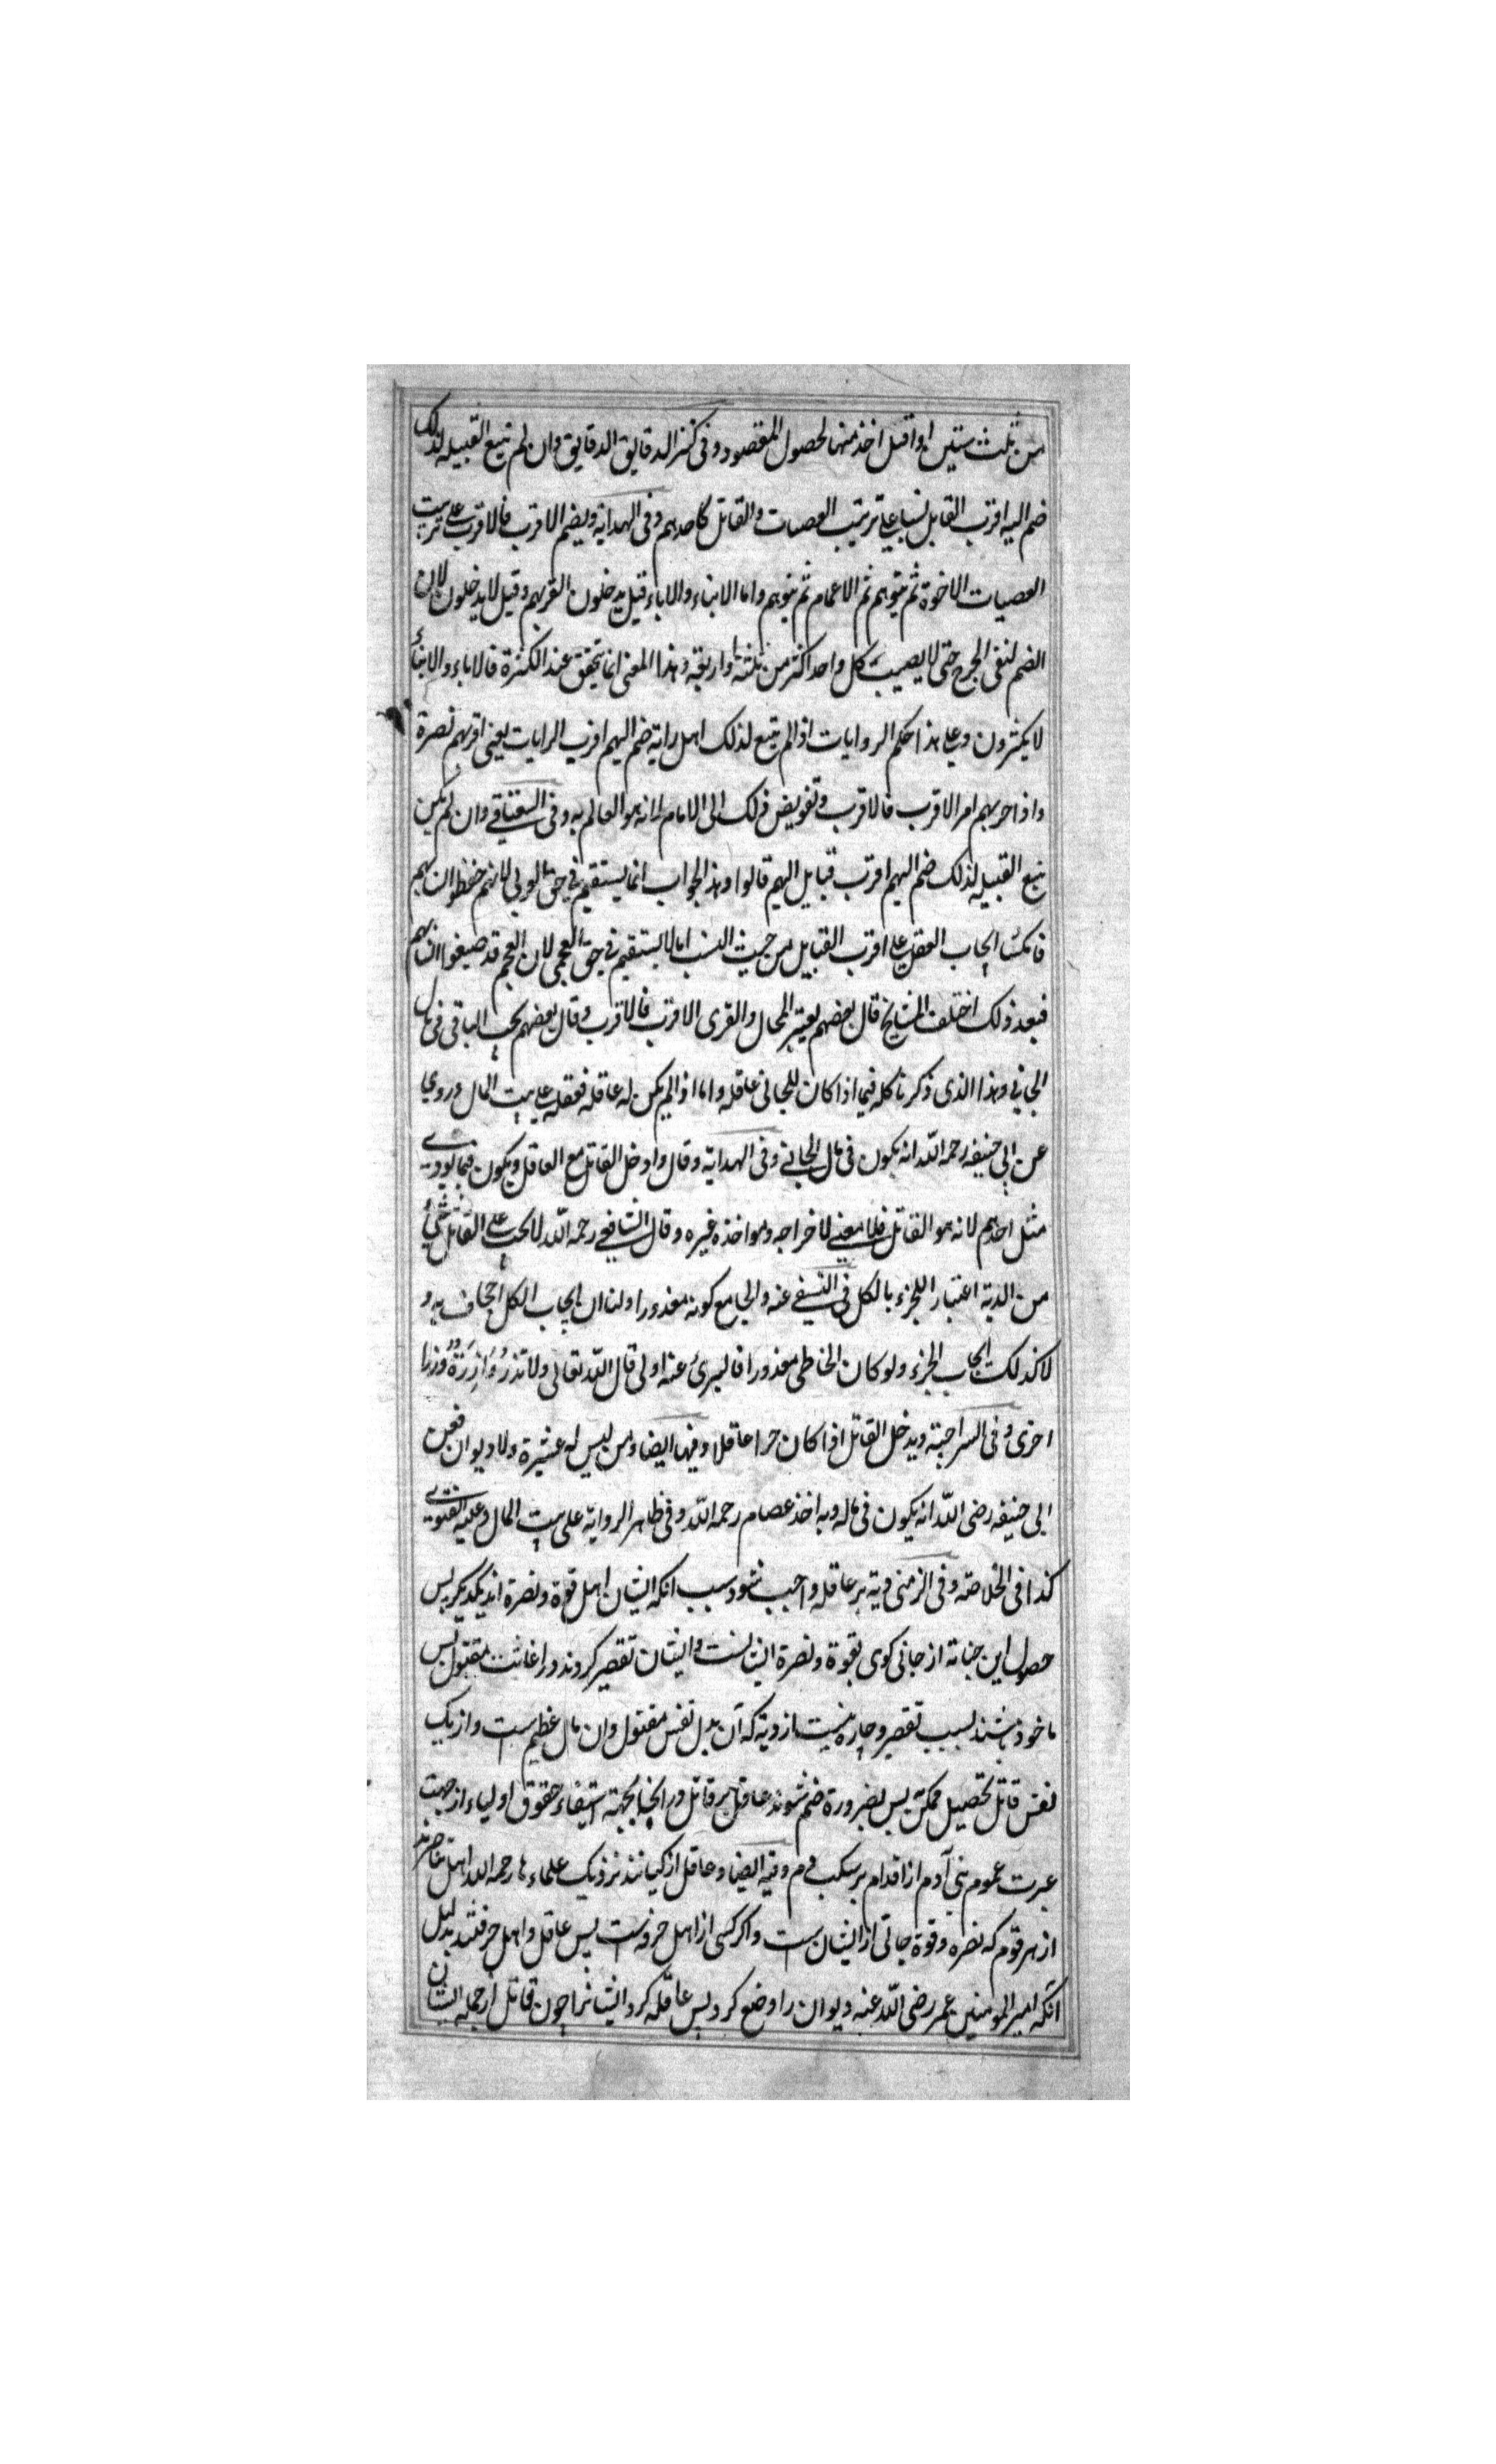 من ثلث سنين او اقبل اخذ منها لحصول المقصود وفی کنز الدقایق الدقایق وان لم تبع القبیله لذلک
ضم الیه اقرب القابل نسبا علی ترتیب العصبات والقاتل کاحدهم وفی الهدایة ویضم الاقرب فالاقرب علی ترتیب
العصبات الاخوة ثم بنوهم ثم الاعمام ثم بنوهم واما الابناء والاباء قیل یدخلون لقربهم وقیل لا یدخلون لان
الضم لنفی الحرج حتی لا یصیب کل واحد اکثر من ثلثة او اربعة وهذا المعنی انما یتحقق عند الکثرة فالاباء والابناء
لا یکثرون وعلی هذا حکم الروایات اذا لم یتبع لذلک اهل رایة ضم الیهم اقرب الرایات یعنی اقربهم نصرة
واذا حربهم امر الاقرب فالاقرب وتفویض ذلک الی الامام لانه هو العالم به وفی السغناقی وان لم یکن
تبع القبیله لذلک ضم الیهم اقرب قبایل الیهم قالوا وهذا الجواب انما یستقیم فی حق العربی لانهم حفظوا انسابهم
فامکننا ایجاب العقل علی اقرب القبایل من حیث النسب اما لا یستقیم فی حق العجمی لان العجم قد ضیعوا انسابهم
فبعد ذلک اختلف المشایخ قال بعضهم یعتبر المحال والقری الاقرب فالاقرب وقال بعضهم یجب الباقی فی مال
الجانی وهذا الذی ذکرنا کله فیما اذا کان للجانی عاقله واما اذا لم یکن له عاقله فعقله علی بیت المال وروی
عن ابی حنیفه رحمه الله انه یکون فی مال الجانی وفی الهدایة وقال وادخل القاتل مع العاقل ویکون فیما یودی
مثل احدهم لانه هو القاتل فلا معنی لاخراجه ومواخذه غیره وقال الشافعی رحمه الله لا یجب علی القاتل شیء
من الدیة اعتبارا للجزء بالکل فی النفی عنه والجامع کونه معذورا ولنا ان ایجاب الکل اجحاف به و
لا کذلک ایجاب الجزء ولو کان الخاطی معذورا فالبریء عنه اولی قال الله تعالی ولا تذر وازرة وزرا
اخری وفی السراجیة ویدخل القاتل اذا کان حرا عاقلا وفیها ایضا ومن لیس له عشیرة ولا دیوان فعن
ابی حنیفه رضی الله انه یکون فی ماله وبه اخذ عصام رحمه الله وفی ظاهر الروایة علی بیت المال وعلیه الفتوی
کذا فی الخلاصة وفی الزمنی دیة بر عاقله واجب شود سبب انکه ایشان اهل قوة ونصرة اند یکدیکر پس
حصول این جنایة از جانی کوی بقوة ونصرة ایشانست وایشان تقصیر کردند در اغاثت مقتول پس
ماخوذ باشند بسبب تقصیر وچاره نیست از دیة که آن بدل نفس مقتول وان مال عظیم است واز یک
نفس قاتل تحصیل ممکن پس بضرورة ضم شوند عاقل بر قاتل در ایجاب بجهة استیفاء حقوق اولیاء از جهت
عبرت عموم بنی آدم از اقدام بر سکب دم وفیه ایضا وعاقل از کیانند نزدیک علماء ما رحمه الله اهل تناصرند
از هر قوم که نصره وقوة جانی از ایشان است واکر کسی از اهل حرفه است پس عاقل واهل حرفتند بدلیل
انکه امیر المومنین عمر رضی الله عنه دیوان را وضع کرد پس عاقله کرد ایشانرا چون قاتل از جمله ایشان